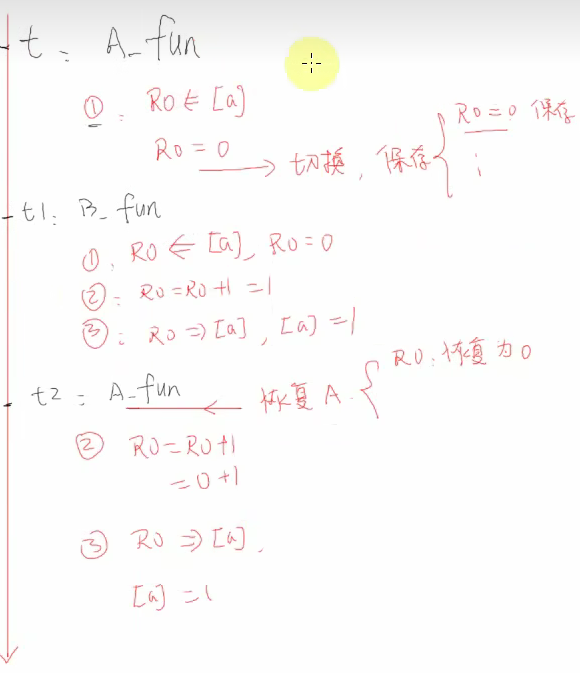 t : A_fun
①: R0 ⇐ [a]
R0 = 0 → 切换, 保存 { R0=0 保存
⋮
t1: B_fun
①. R0 ⇐ [a], R0=0
②: R0=R0+1 =1
③: R0 ⇒ [a], [a] =1
t2 : A_fun ← 恢复 A. { R0: 恢复为0
② R0=R0+1
=0+1
③ R0 ⇒ [a].
[a] =1